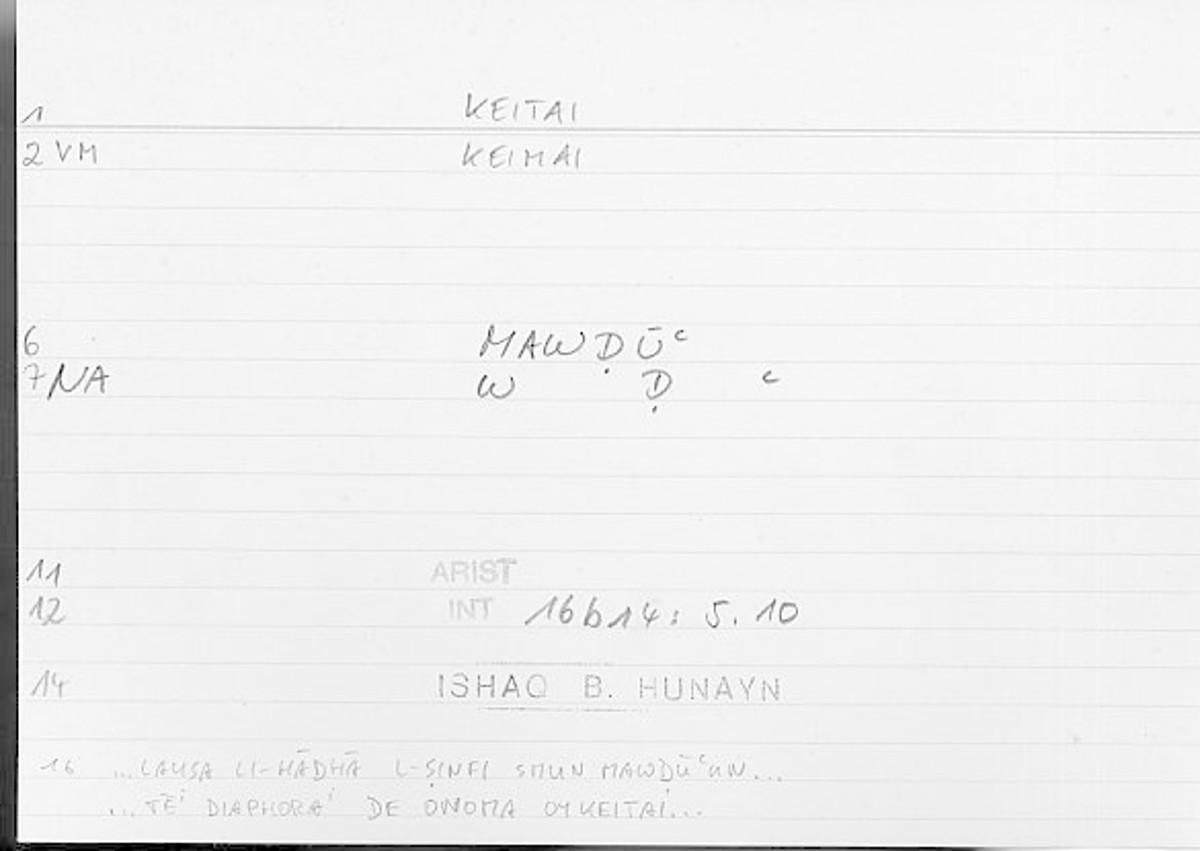 1 KEITAI
2 VM KEIMAI
6 MAWḌŪʿ
7 NA W Ḍ ʿ
11 ARIST
12 INT 16b14: 5.10
14 ISHAQ B. HUNAYN
16 ...LAYSA LI-HĀDHĀ L-ṢINFI SMUN MAWḌŪʿUN...
...TĒⁱ DIAPHORAⁱ DE ONOMA OY KEITAI...